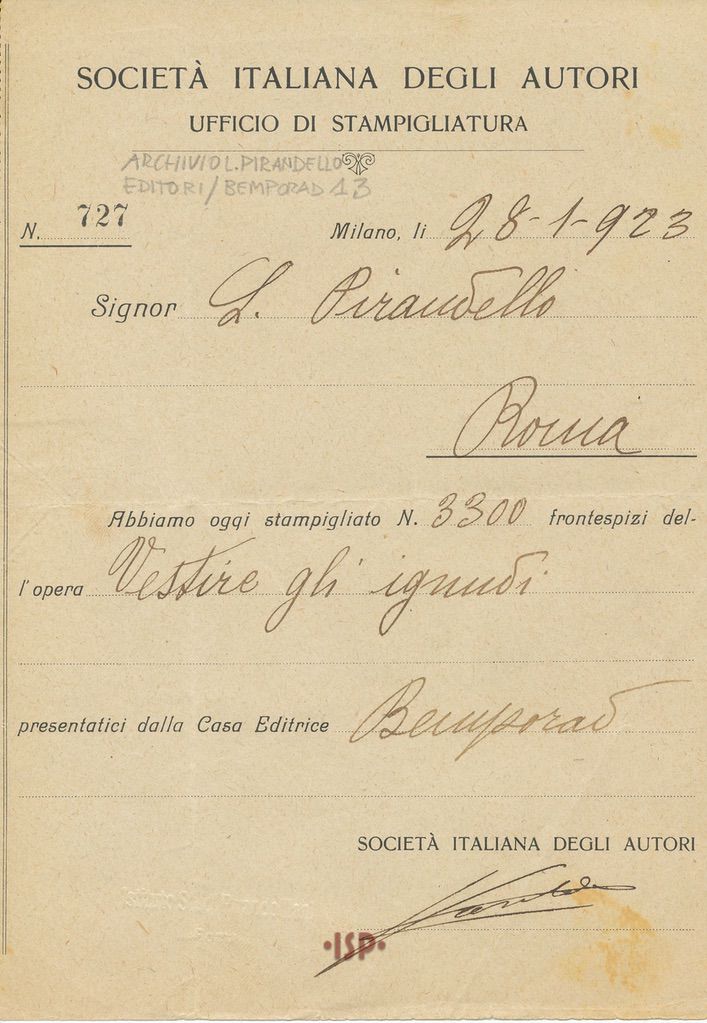 SOCIETÀ ITALIANA DEGLI AUTORI
UFFICIO DI STAMPIGLIATURA
ARCHIVIO L. PIRANDELLO
EDITORI/BEMPORAD 13
N. 727
Milano, li 28-1-923
Signor L. Pirandello
Roma
Abbiamo oggi stampigliato N. 3300 frontespizi del-
l'opera Vestire gli ignudi
presentatici dalla Casa Editrice Bemporad
SOCIETÀ ITALIANA DEGLI AUTORI
·ISP·